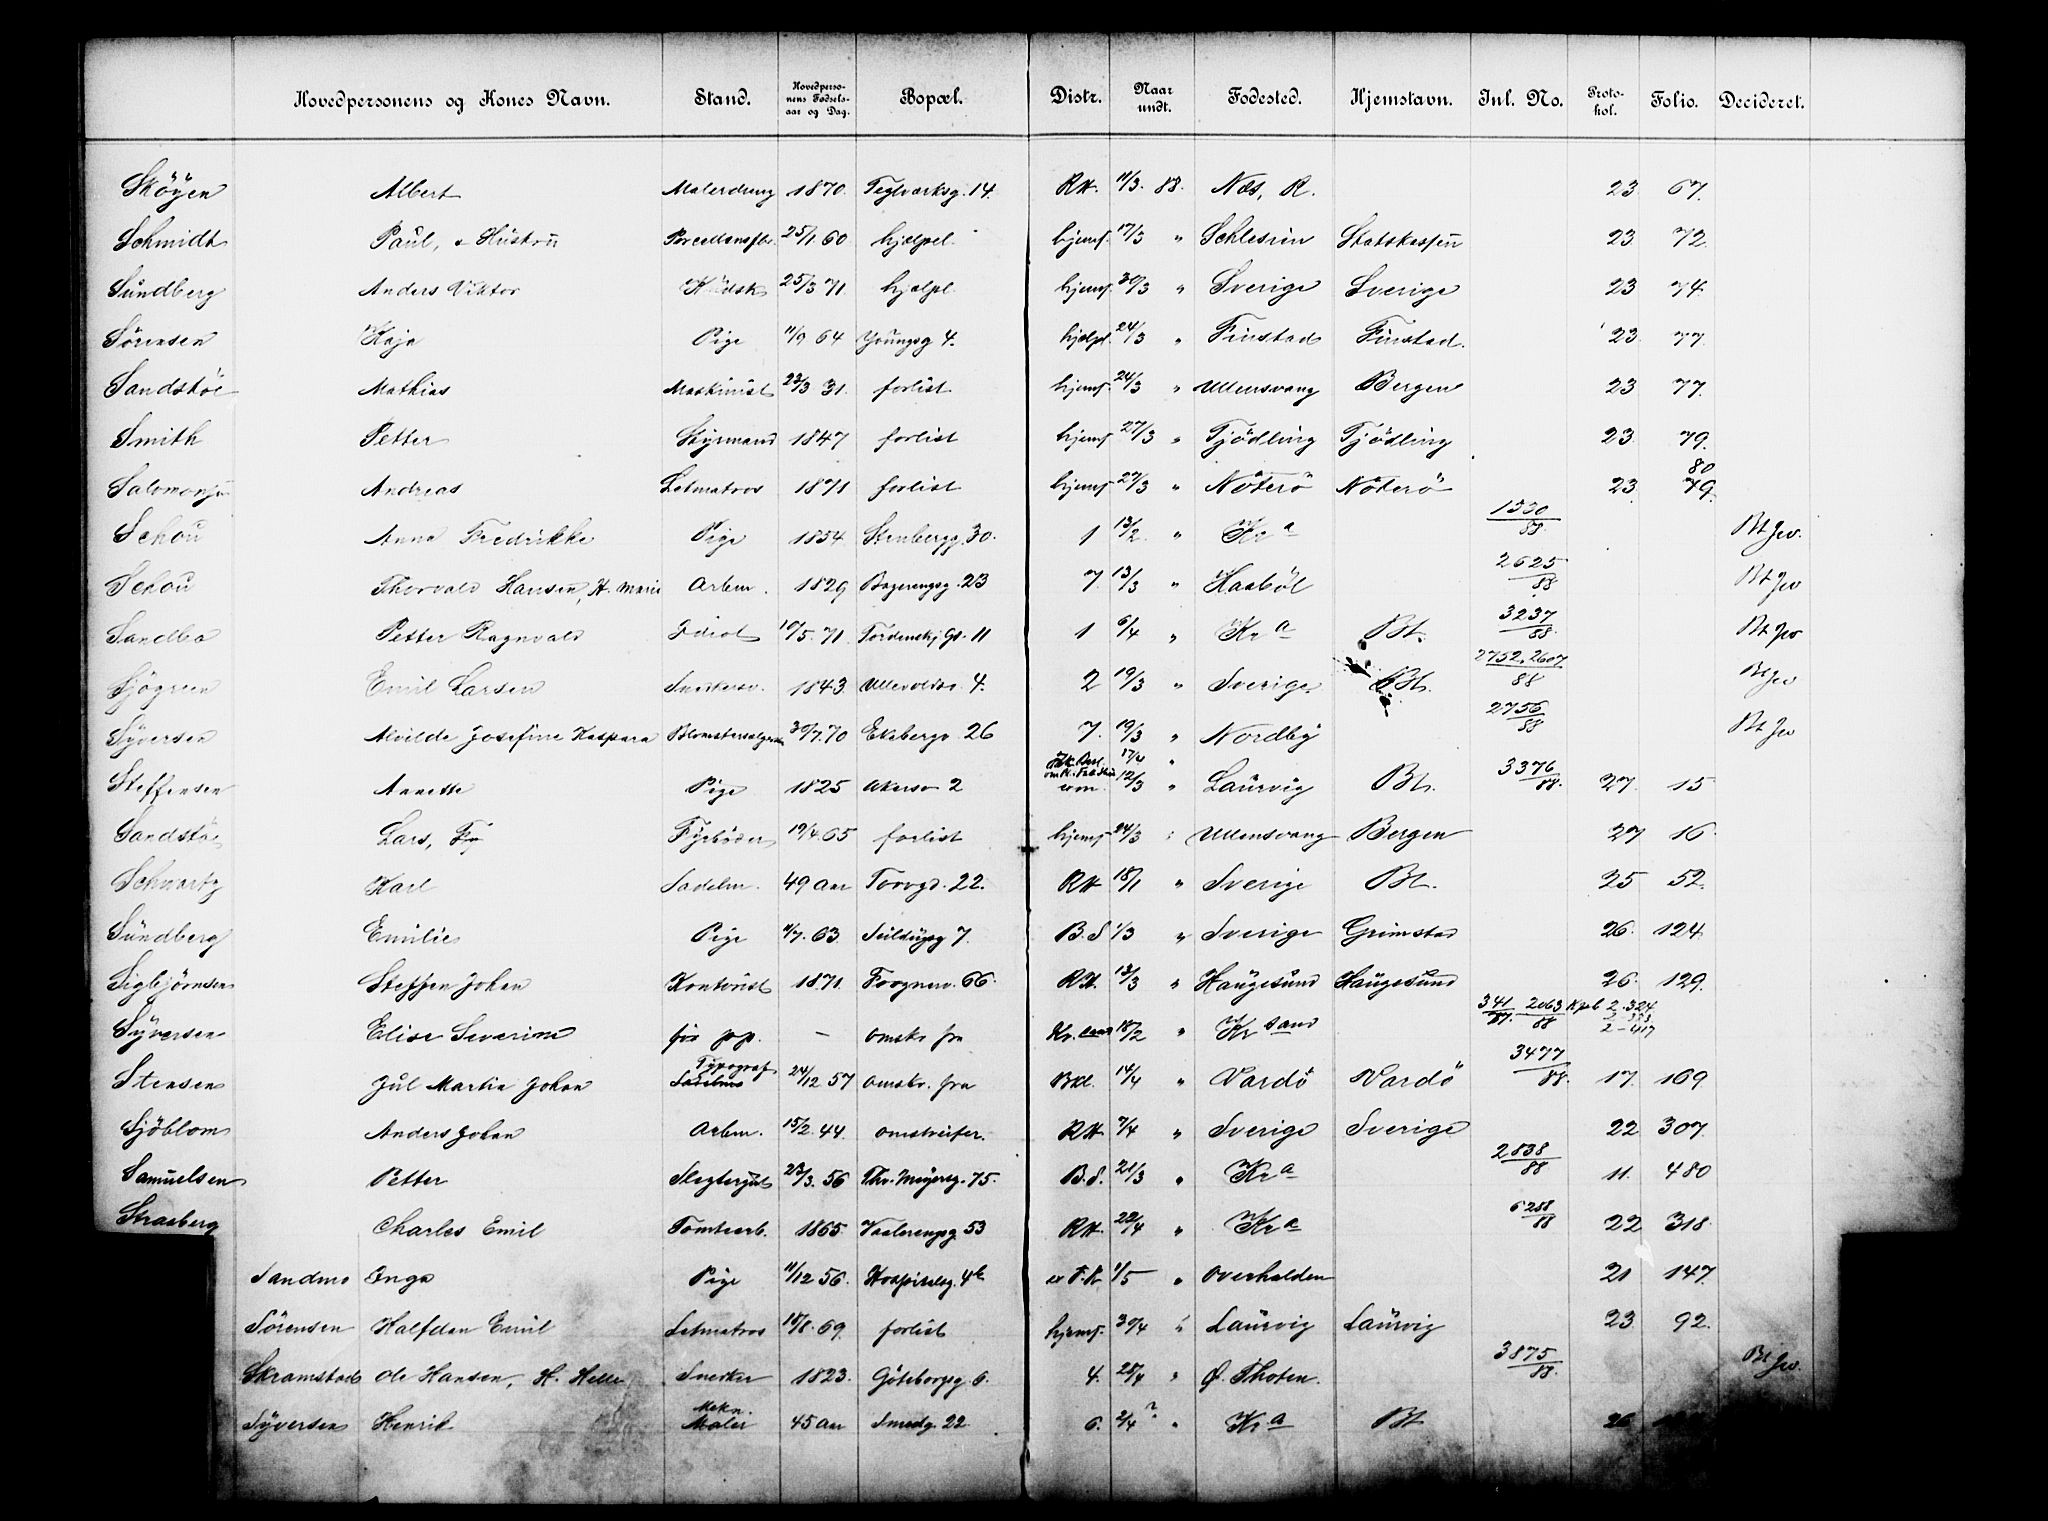 Hovedpersonens og Kones Navn. Stand. Hovedpersonens Fødselsaar og Dag. Bopæl. Distr. Naar undt. Fodested. Hjemstavn. Inl. No. Protokol. Folio. Decideret.
Sköyen Albert Malerdreng 1870. Teglverksg. 14. RH. 11/3. 88. Næs, R. 23. 67.
Schmidt Paul, o Hustru 25/1 60 hjælpel. hjemf. 17/3 " Schlesien Statskassen 23 72.
Sundberg Anders Viktor 25/3 71. hjælpl. hjemf. 30/3 " Sverige Sverige 23 74.
Sörensen Kaja Pige 11/9 64 Youngsg 4. hjælpl. 24/3 " Finstad Finstad. 23. 77.
Sandstöe Mathias Maskinist 23/3 31. forlist hjemf. 24/3 " Ullensvang Bergen 23 77.
Smith Petter Styrmand 1847 forlist hjemf. 27/3 " Tjödling Tjödling 23. 79.
Andreas Letmatros 1871 forlist hjemf 27/3 " Nöterö Nöterö 23 80 79.
Schou Anna Fredrikke Pige 1854 Stenbergg. 30. 1 13/2. " Kra 1530/88. Bt Jev.
Schou Thorvald Hansen, H. Marie Arbm. 1829 23 7. 13/3 " Haaböl 2625/88. Bt Jev
Sandbo Petter Ragnvald Idiot 10/5. 71. Tordenskj. Gt. 11 1 6/4 " Kra Bt. 3237/88. Bt Jev
Sjögreen Emil Larsen Snekkersv. 1843. Ullevoldsv. 4. 2 19/3 " Sverige Bt. 2752, 2607/88 Bt Jev
Syversen Alvilde Josefine Kaspara 30/7. 70 Ekebergv. 26 7. 19/3 " Nordby 2756/88 Bt Jev
Steffensen Annette Pige 1825 Akersv 2 17/4 " 12/3 " Laurvig Bt. 3376/88. 27. 15
Sandstöe Lars, Fyrböder 19/4. 65 forlist hjemf 24/3 " Ullensvang Bergen 27 16.
Schwartz Karl Sadelm. 49 Aar Torvgd. 22. RH 18/1 " Sverige Bt. 25 52.
Sundberg Emilie Pige 11/7. 63. Seildugsg 7. B.S 1/3 " Sverige Grimstad 26. 124
Sigbjörnsen Steffen Johan Kontorist 1871. Frognerv. 66. RH. 13/3 " Haugesund Haugesund 26. 129.
Syversen Elise Severine – omskr fra 18/2 " Kr sand 341/87. 2063/88 Kpl 2. 324 2-417
Stensen Jul Martin Johan Typograf 24/12 57 omskr. fra 14/4 " Vardö Vardö 3477/88. 17. 169
Sjöblom Anders Johan Arbm. 15/2. 44. omstreifer. RH 7/4 " Sverige Sverige 22 307.
Samuelsen Petter 23/3. 56 Thv. Meyersg. 75. B.S. 21/3 " Kra 2838/88 11. 480
Strasberg Charles Emil Tomtearb. 1865. Vaalerengsg. 53 RH. 22/4 " Kra 6288/88 22 318.
Sandmo Inga Pige 11/12 56. Hospitalsg. 4b 1/5 " Overhalden 21 147.
Sörensen Halfdan Emil Letmatros 18/8. 69. forlist hjemf. 30/4 " Laurvig Laurvig 23 92.
Skramstad Ole Hansen, H. Helle Snedker 1823. Göteborgg 6. 4. 25/4 " Ø. Thoten. 3875/88. Bt Jev.
Syversen Henrik Maler 45 Aar Smedg. 22 6. 2/4 ? " Kra Bt 26